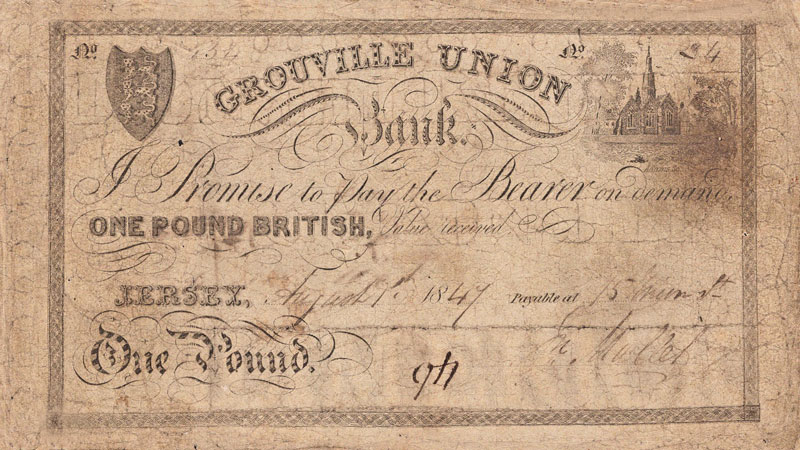 No. No. 24
GROUVILLE UNION
Bank.
I Promise to Pay the Bearer on demand,
ONE POUND BRITISH, Value received
JERSEY, August 1847 Payable at 15
One Pound.